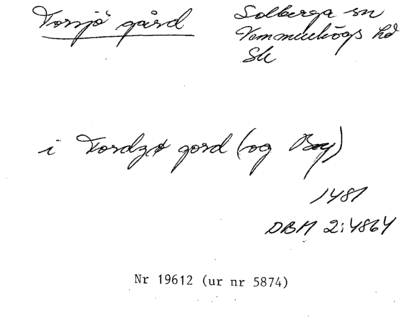 Torsjö gård
Solberga sn
Vemmenhögs hd
Sk
i Tordzø gord (og By)
1481
DBM 2:4864
Nr 19612 (ur nr 5874)